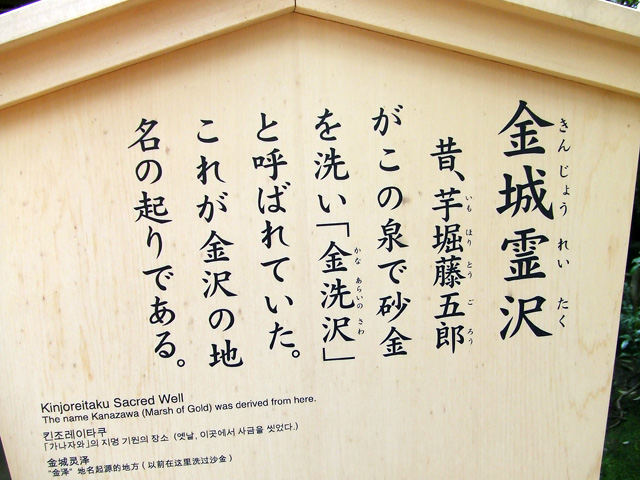 金城霊沢
きんじょうれいたく
昔、芋堀藤五郎
いもほりとうごろう
がこの泉で砂金
を洗い「金洗沢」
かなあらいのさわ
と呼ばれていた。
これが金沢の地
名の起りである。
Kinjoreitaku Sacred Well
The name Kanazawa (Marsh of Gold) was derived from here.
킨조레이타쿠
「가나자와」의 지명 기원의 장소 (옛날, 이곳에서 사금을 씻었다.)
金城灵泽
"金泽" 地名起源的地方 ( 以前在这里洗过沙金 )